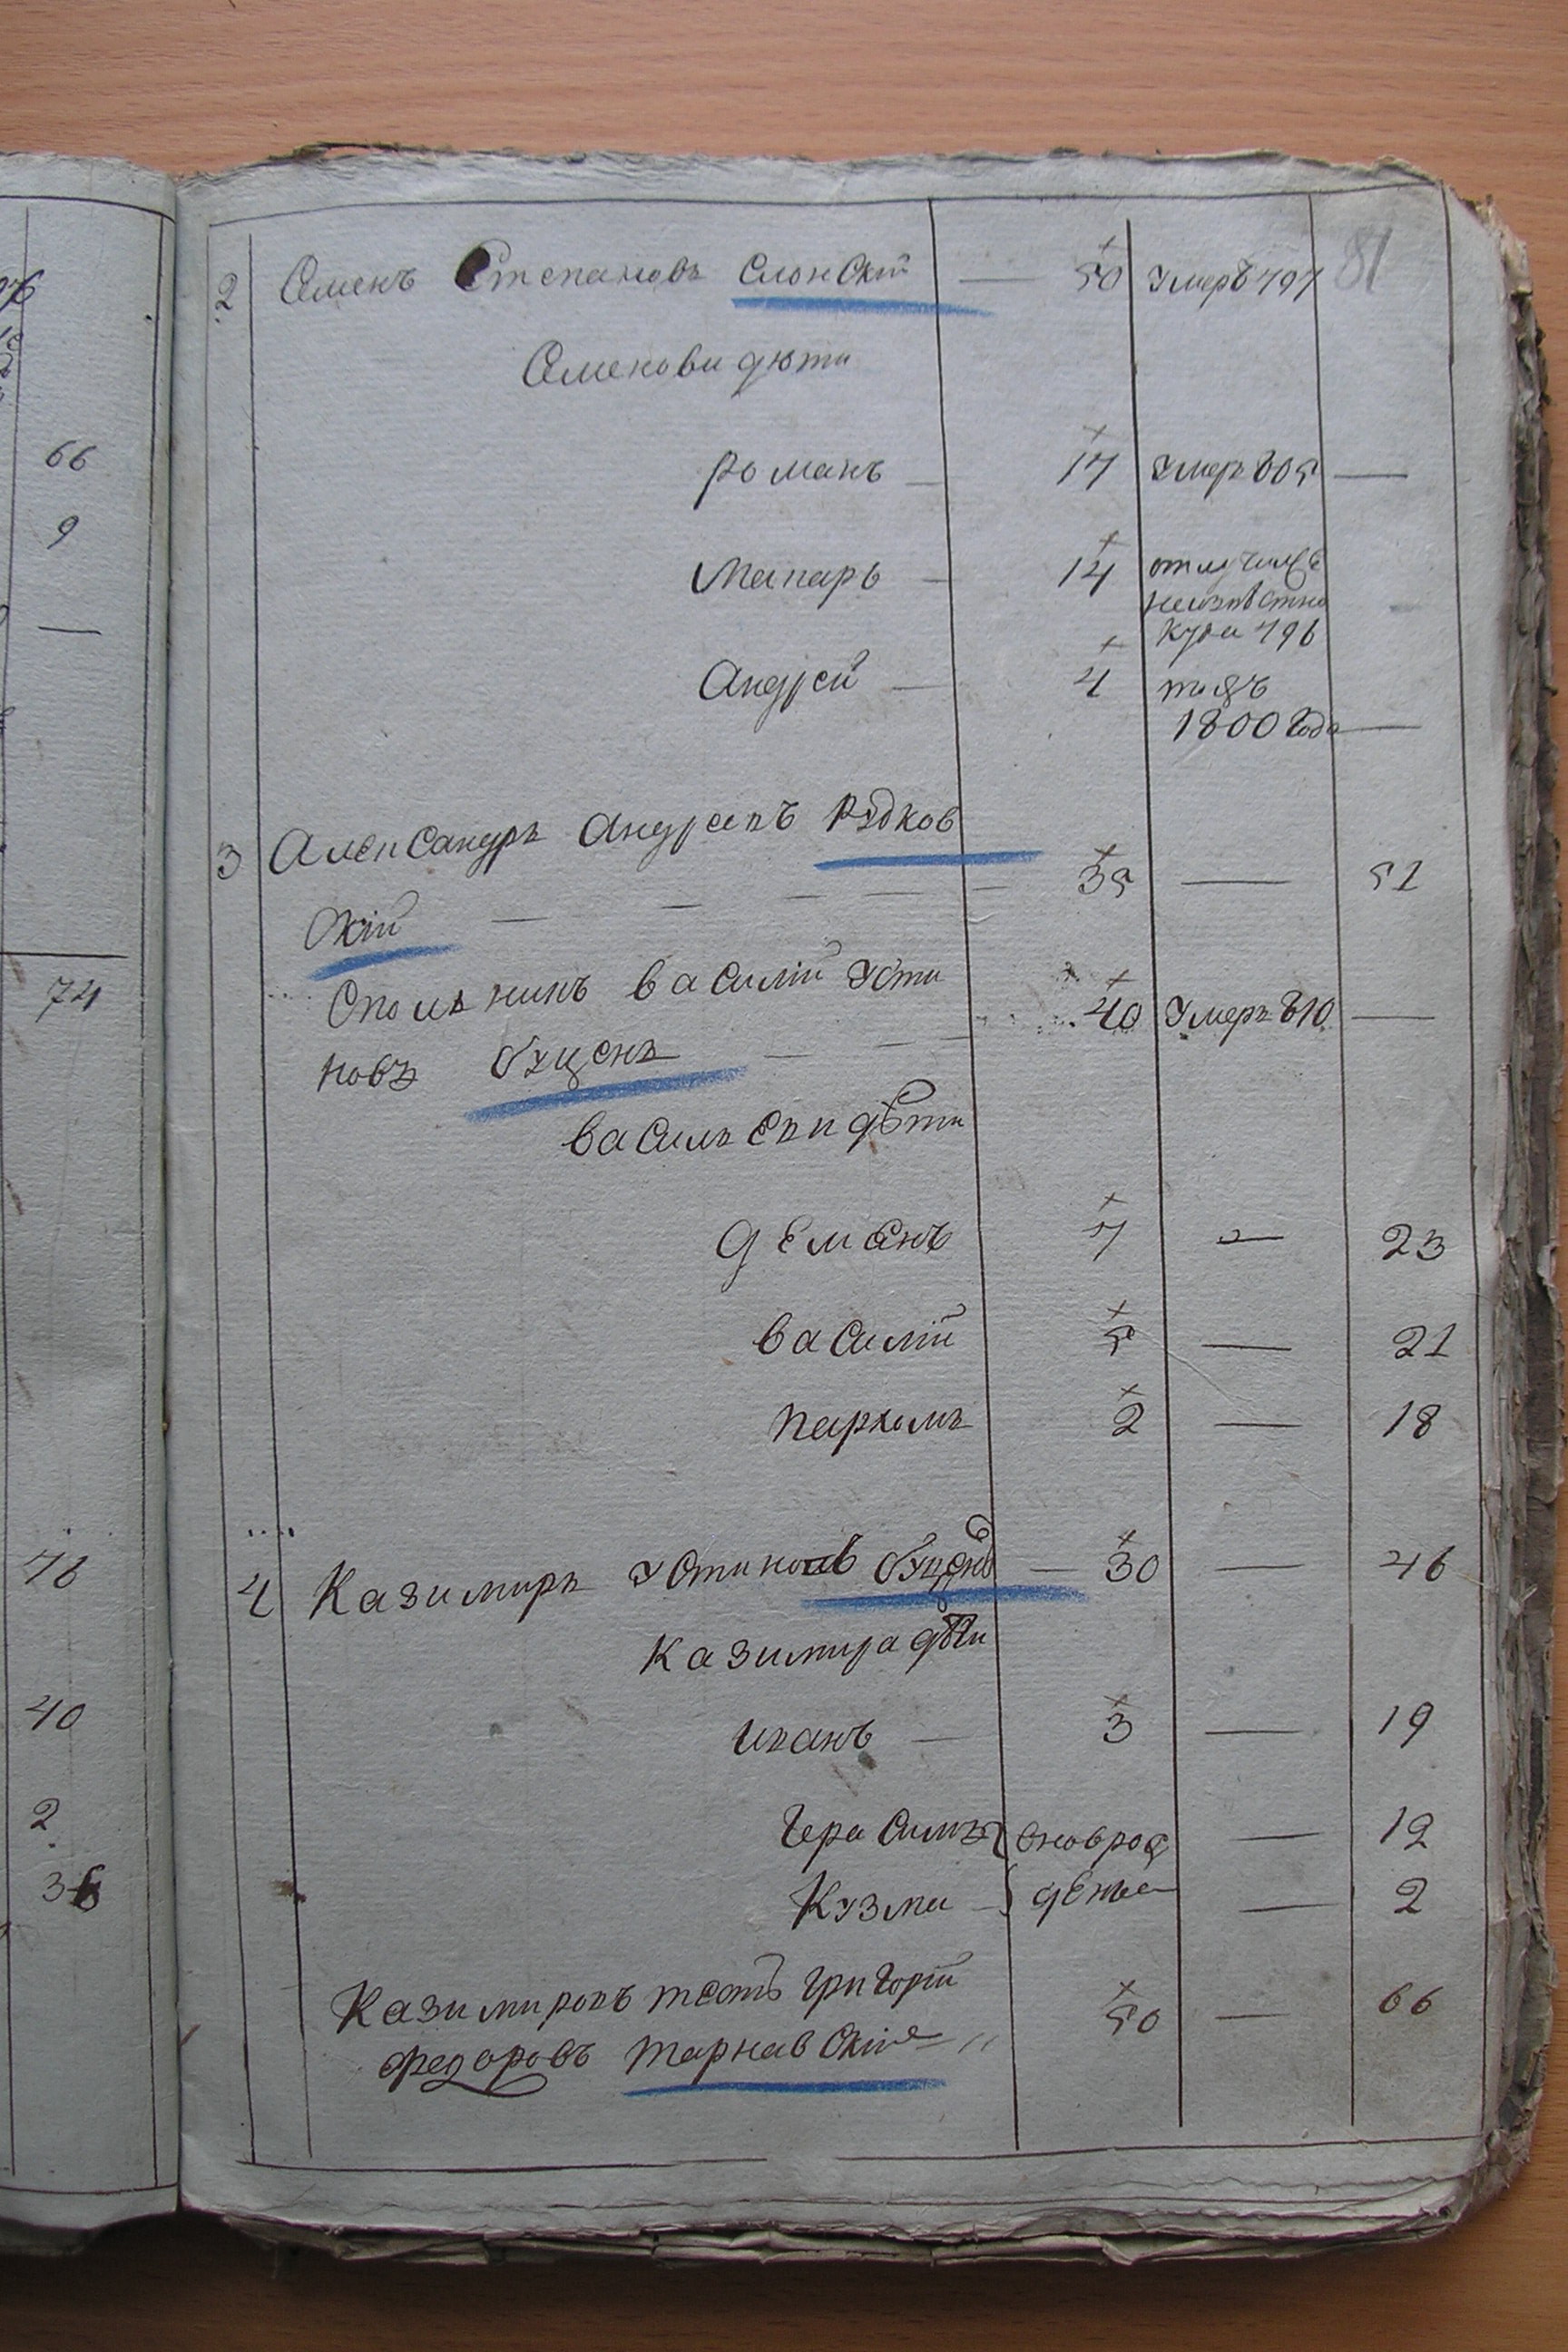 76
66
9
—
74
46
40
2
36
81
2 Семенъ Степановъ Слонскій — 50 Умеръ 797
Семенови дѣти
Романъ — 17 Умеръ 805 —
Макаръ — 14 отлучился
неизвѣстно
куда 796
Андрей — 4 тожъ
1800 Года —
3 Александръ Андреевъ Рудков
скій — — — — 35 — 51
Спольникъ Василій Усти
новъ Буценъ — — — 40 Умеръ 810 —
Васильеви дѣти
Демянъ 7 — 23
Василій 5 — 21
Пархомъ 2 — 18
4 Казимиръ Устиновъ Буценъ — 30 — 46
Казимира дѣти
Иванъ — 3 — 19
Герасимъ } вновь рож — 12
Кузма — } дены — 2
Казимировъ тесть Григорій
Федоровъ Тарнавскій 50 — 66